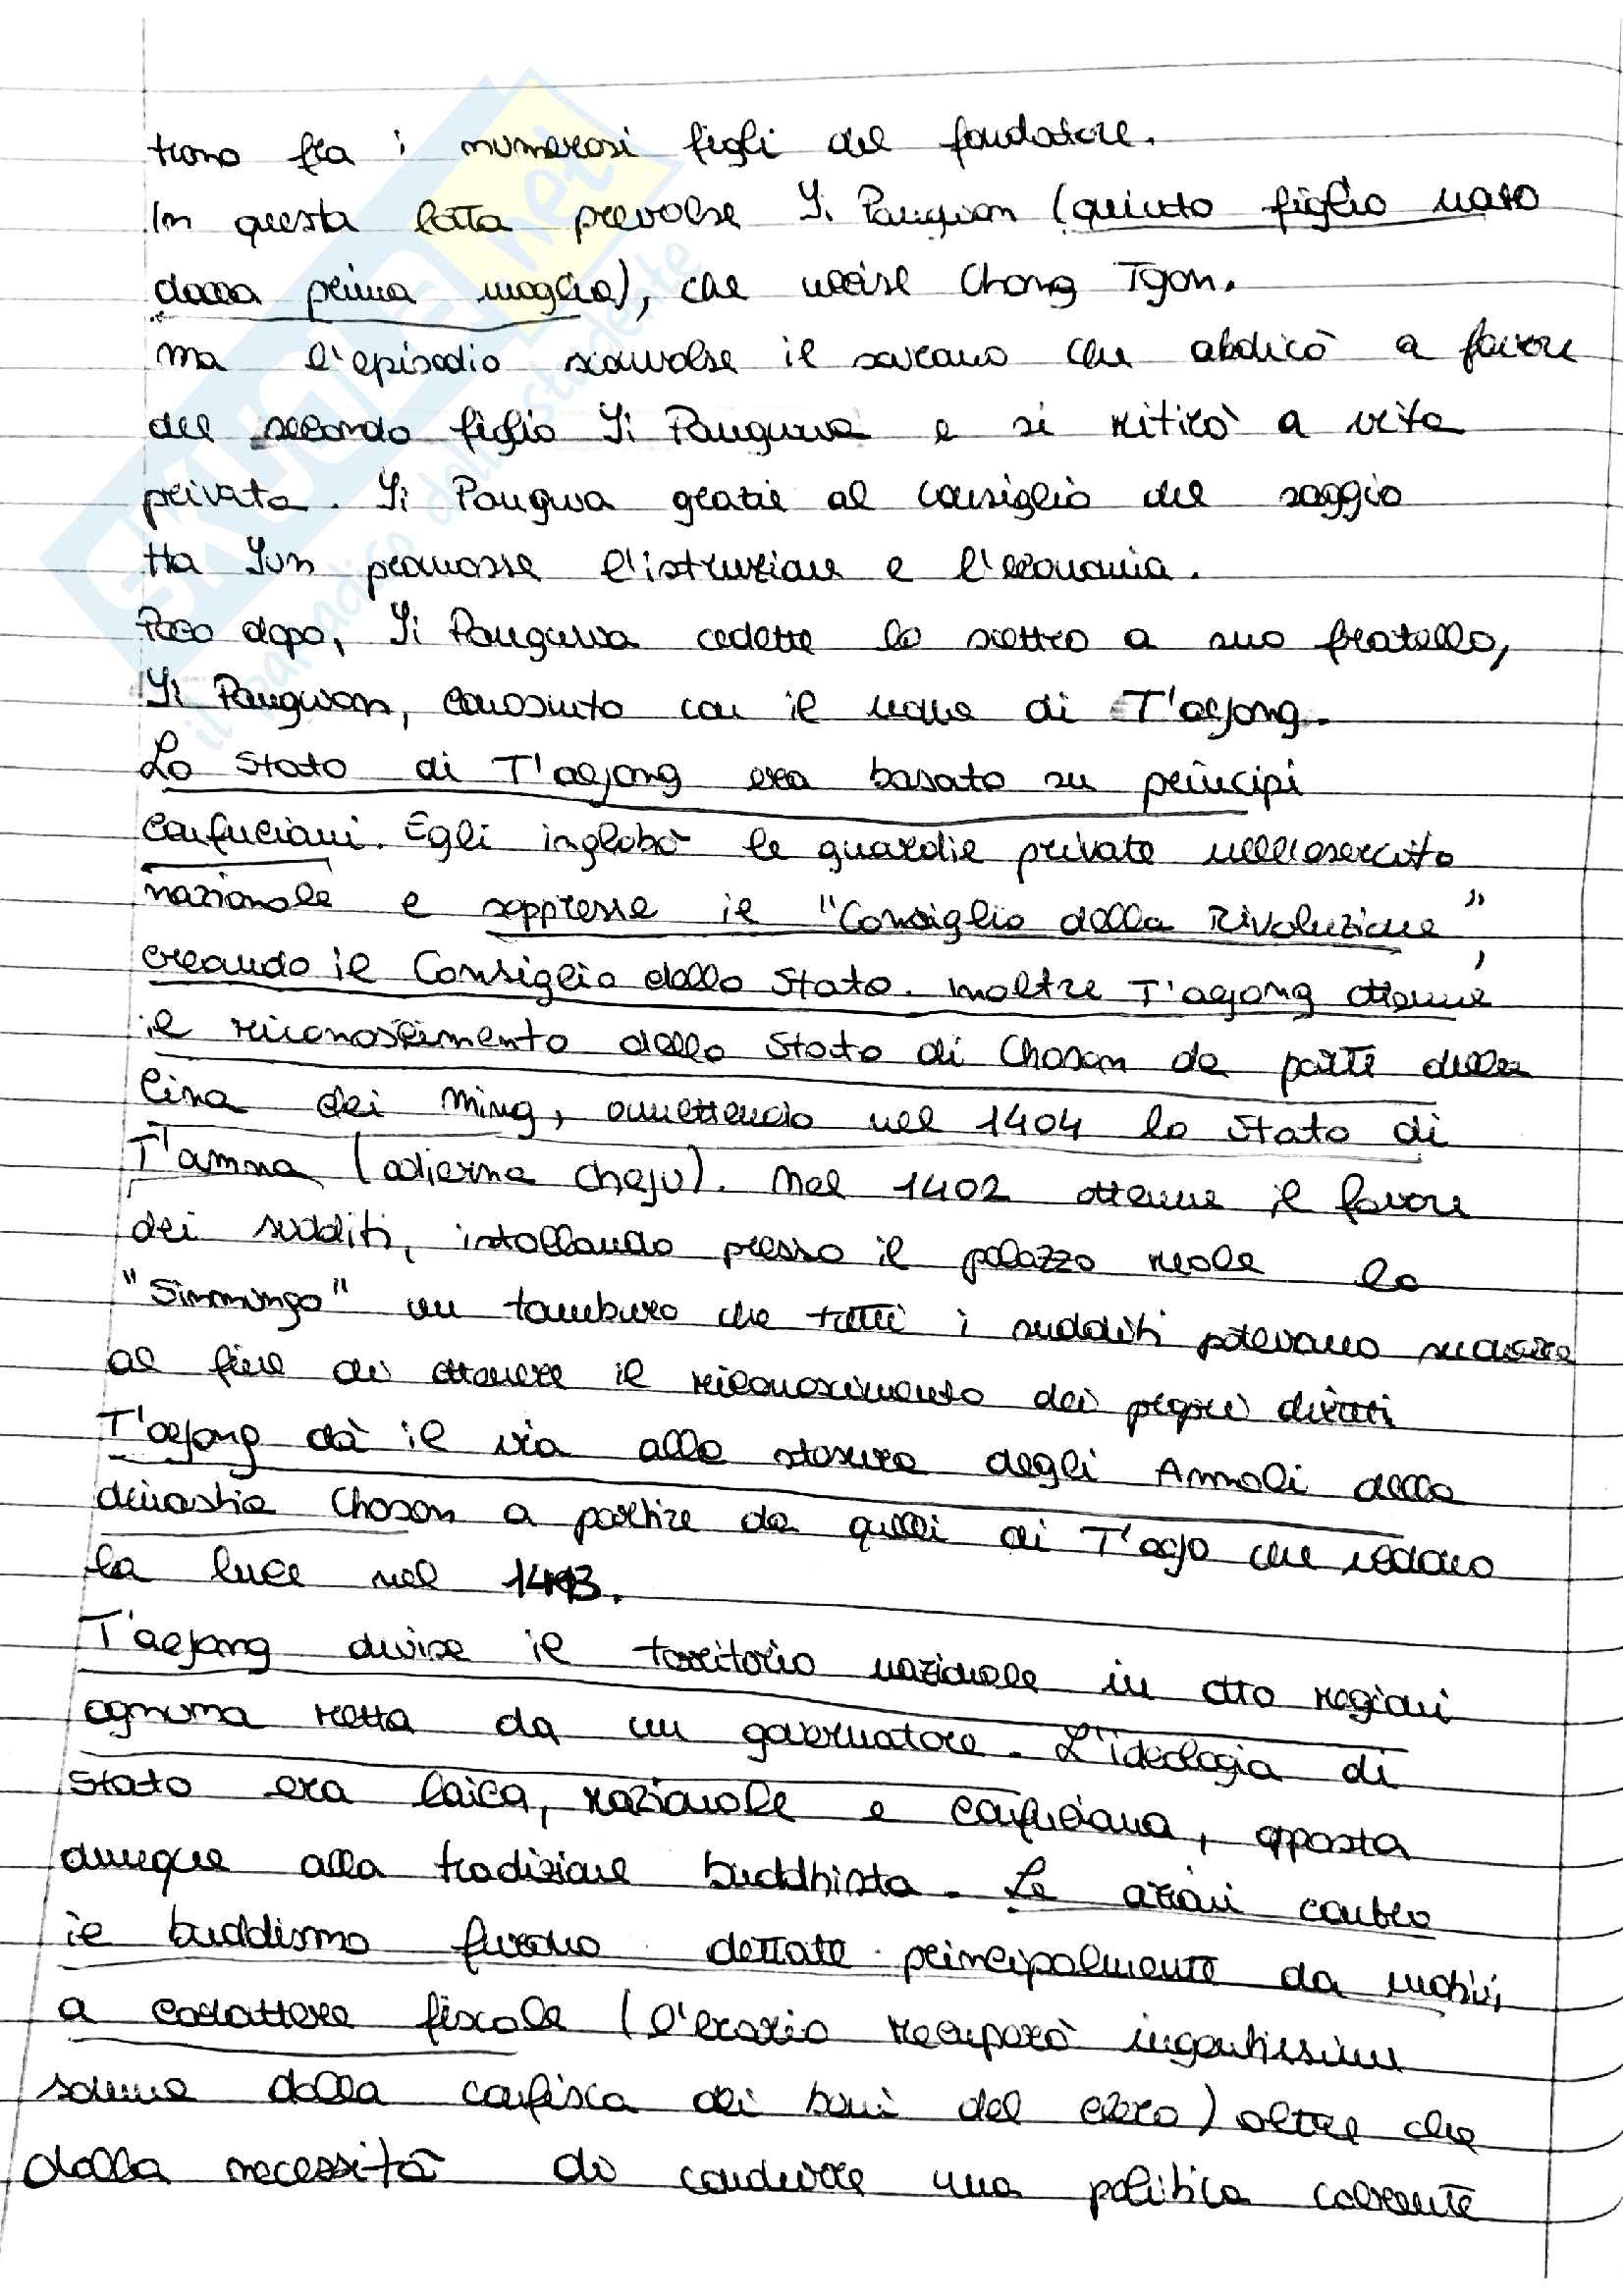 trono fra i numerosi figli del fondatore.
In questa lotta prevalse Yi Pangwon (quinto figlio nato
dalla prima moglie), che uccise Chong Tgon.
Ma l'episodio sconvolse il sovrano che abdicò a favore
del secondo figlio Yi Pangwa e si ritirò a vita
privata. Yi Pangwa grazie al consiglio del saggio
Ha Yun promosse l'istruzione e l'economia.
Poco dopo, Yi Pangwa cedette lo scettro a suo fratello,
Yi Pangwon, conosciuto con il nome di T'aejong.
Lo Stato di T'aejong era basato su principi
confuciani. Egli inglobò le guardie private nell'esercito
nazionale e soppresse il "Consiglio della Rivoluzione",
creando il Consiglio dello Stato. Inoltre T'aejong ottenne
il riconoscimento dello Stato di Choson da parte della
Cina dei Ming, annettendo nel 1404 lo Stato di
T'amna (odierna Cheju). Nel 1402 ottenne il favore
dei sudditi, istallando presso il palazzo reale lo
"Sinmungo" un tamburo che tutti i sudditi potevano suonare
al fine di ottenere il riconoscimento dei propri diritti
T'aejong dà il via alla stesura degli Annali della
dinastia Choson a partire da quelli di T'aejo che vedono
la luce nel 1413.
T'aejong divise il territorio nazionale in otto regioni
ognuna retta da un governatore. L'ideologia di
Stato era laica, razionale e confuciana, opposta
dunque alla tradizione buddhista. Le azioni contro
il buddismo furono dettate principalmente da motivi
a carattere fiscale (l'erario recuperò ingentissime
somme dalla confisca dei beni del clero) oltre che
dalla necessità di condurre una politica coerente
SKUOLA.net
il paradiso dello studente